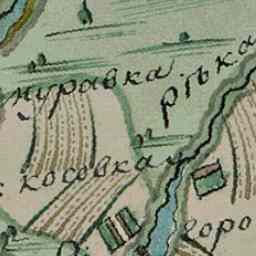 журавка
рѣка
косовка
горо